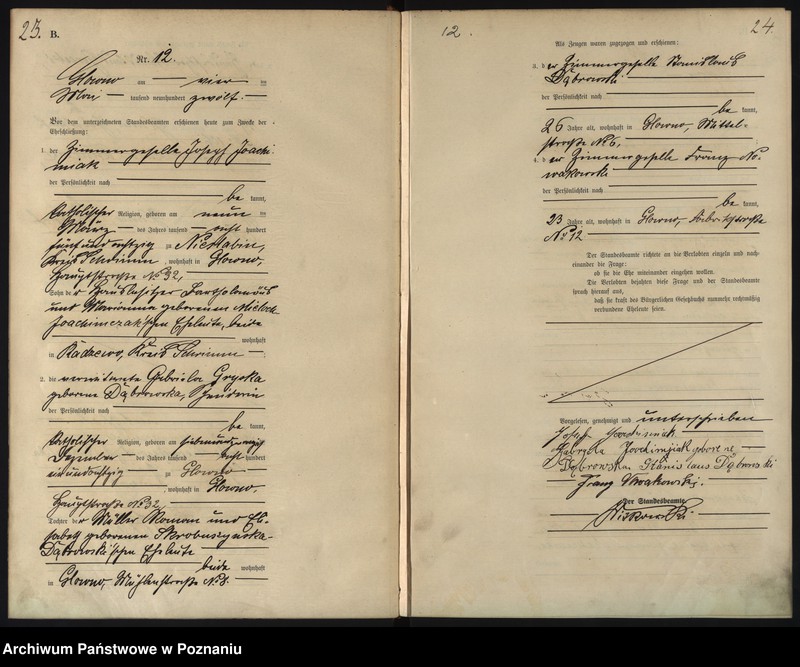 23.
B.
Nr. 12.
Glowno am vier ten
Mai tausend neunhundert zwölf.
Vor dem unterzeichneten Standesbeamten erschienen heute zum Zwecke der
Eheschließung:
1. der Zimmergeselle Joseph Joachi-
miak
der Persönlichkeit nach
be kannt,
katholischer Religion, geboren am neun ten
März des Jahres tausend acht hundert
fünfundachtzig zu Niesłabin,
Kreis Schrimm, wohnhaft in Glowno,
Hauptstraße No 32,
Sohn der Hausbesitzer Bartholomäus
und Marianna geborenen
Joachimczak'schen Eheleute, beide
wohnhaft
in Radzewo, Kreis Schrimm
2. die verwitwete Gabriela Gryska
geborene Dąbrowska,
der Persönlichkeit nach
be kannt,
katholischer Religion, geboren am siebenundzwanzig
Dezember des Jahres tausend acht hundert
einundachtzig zu Glowno
, wohnhaft in Glowno,
Hauptstraße No 32,
Tochter der Müller Roman und Eli-
sabeth geborenen Skrobuszyńska-
Dąbrowski'schen Eheleute
beide wohnhaft
in Glowno, Mühlenstraße No 8.
12.
24.
Als Zeugen waren zugezogen und erschienen:
3. der Zimmergeselle Stanislaus
Dąbrowski
der Persönlichkeit nach
be kannt,
26 Jahre alt, wohnhaft in Glowno, Mittel-
straße No 6,
4. der Zimmergeselle Franz No-
wakowski
der Persönlichkeit nach
be kannt,
23 Jahre alt, wohnhaft in Glowno, Fabrikstraße
No 12
Der Standesbeamte richtete an die Verlobten einzeln und nach-
einander die Frage:
ob sie die Ehe miteinander eingehen wollen.
Die Verlobten bejahten diese Frage und der Standesbeamte
sprach hierauf aus,
daß sie kraft des Bürgerlichen Gesetzbuchs nunmehr rechtmäßig
verbundene Eheleute seien.
Vorgelesen, genehmigt und unterschrieben
Józef Joachimiak
Gabryela Joachimjiak geborene
Dąbrowska Stanislaus Dąbrowski
Franz Nwakowski.
Der Standesbeamte
Archiwum Państwowe w Poznaniu